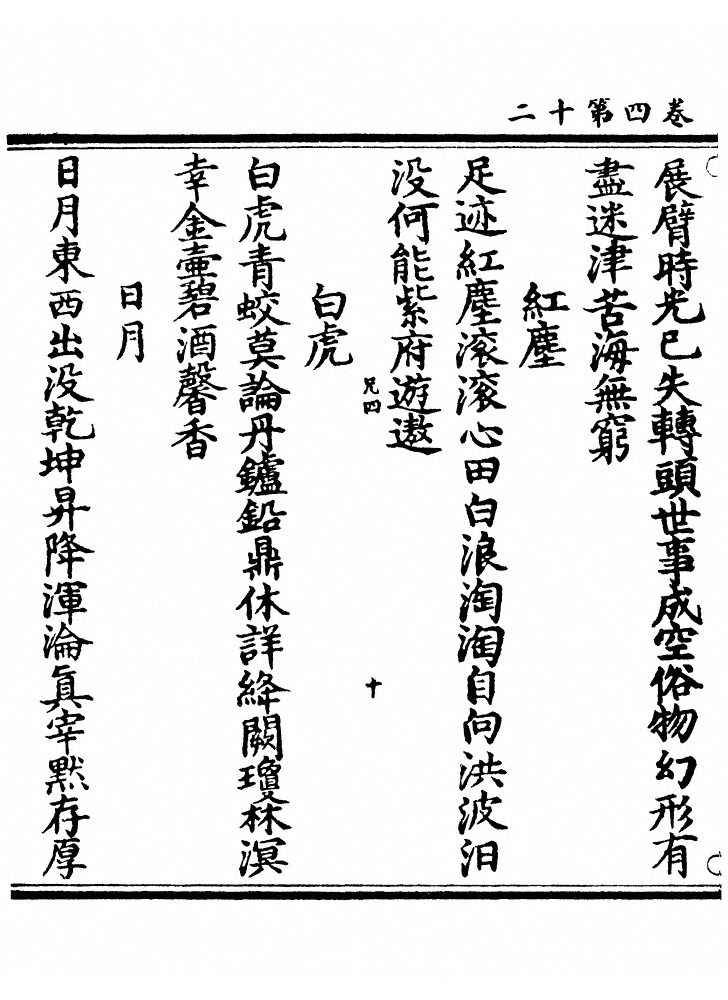 卷四第十二
展臂時光已失轉頭世事成空俗物幻形有
盡迷津苦海無窮
紅塵
足迹紅塵滚滚心田白浪淘淘自向洪波汩
没何能紫府遊遨
兄四
十
白虎
白虎青蛟莫論丹鑪鉛鼎休詳絳闕瓊林溟
涬金壷碧酒馨香
日月
日月東西出没乾坤昇降渾淪真宰默存厚